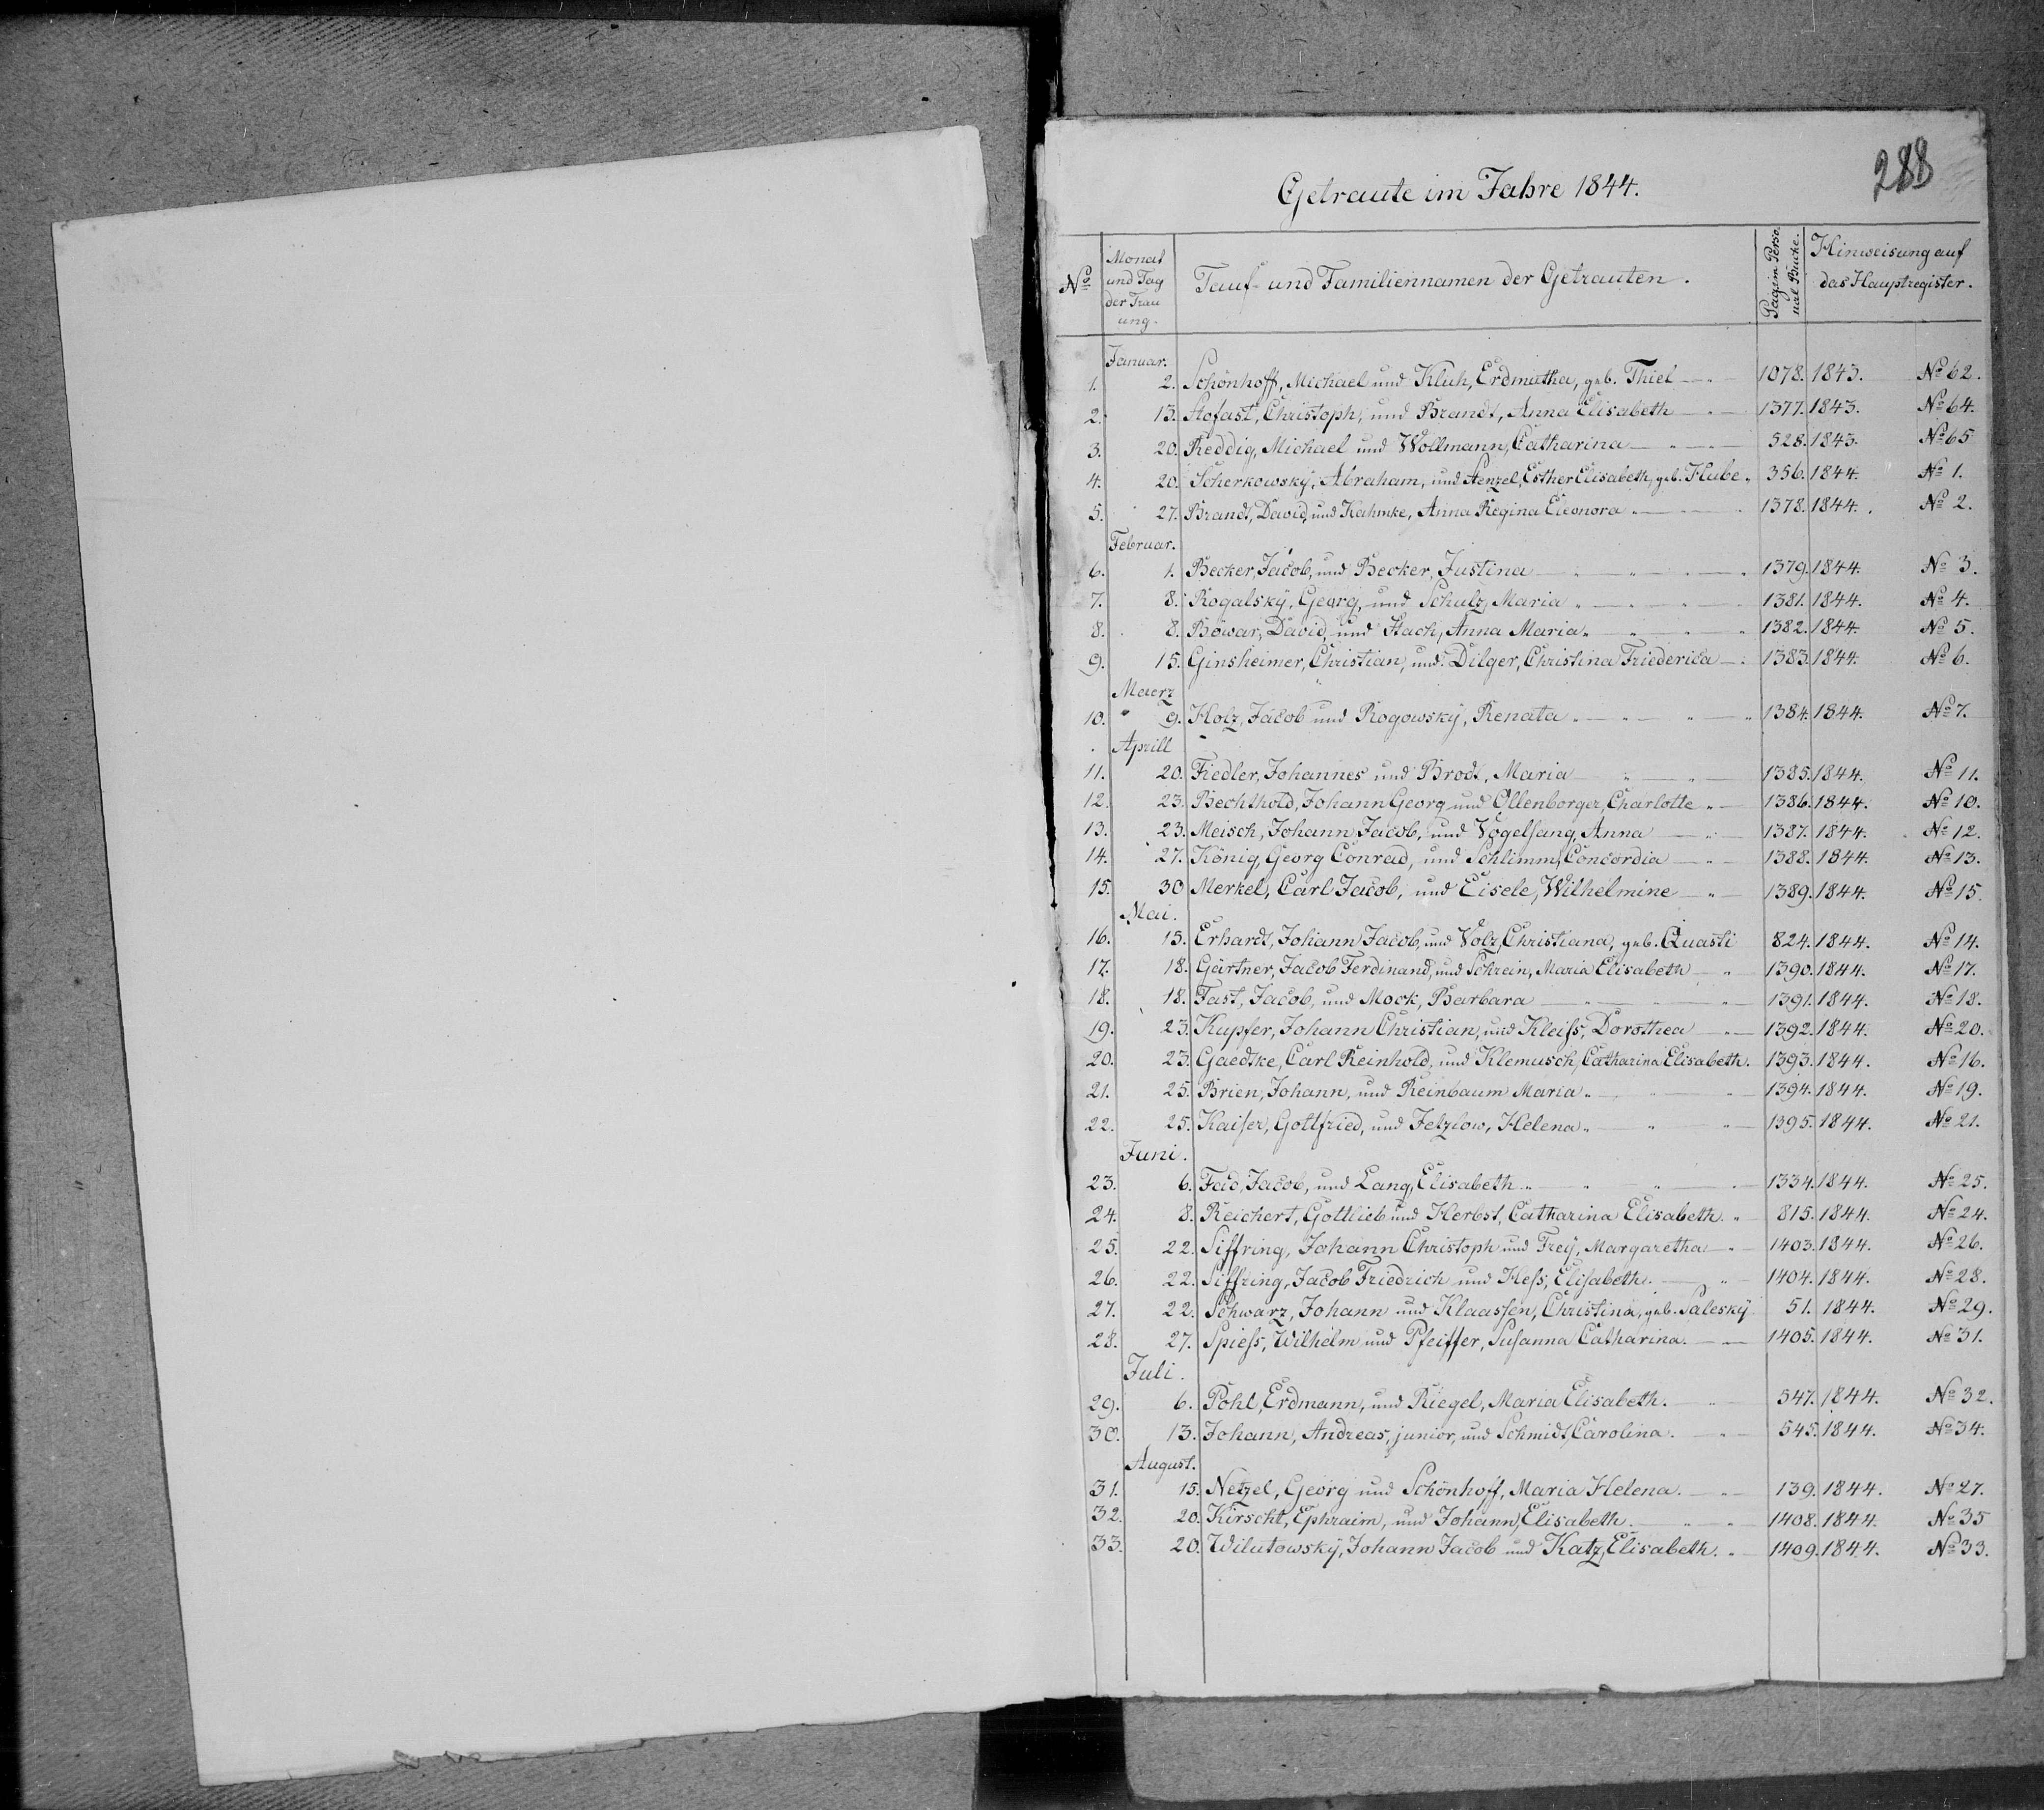 288
Getraute im Jahre 1844.
No Monat und Tag der Trau ung. Tauf- und Familiennamen der Getrauten. Pag. im Perso nal Buche. Hinweisung auf das Hauptregister.
Januar.
1. 2. Schönhoff, Michael und Kluh, Erdmutha, geb. Thiel 1078. 1843. No 62.
2. 13. Stofast, Christoph, und Brandt, Anna Elisabeth 1377. 1843. No 64.
3. 20. Reddig, Michael und Wollmann, Catharina 528. 1843. No 65
4. 20. Scherkowsky, Abraham, und Stenzel, Esther Elisabeth, geb. Hube 356. 1844. No 1.
5. 27. Brandt, David, und Kahmke, Anna Regina Eleonora 1378. 1844. No 2.
Februar.
6. 1. Becker, Jacob, und Becker, Justina 1379. 1844. No 3.
7. 8. Rogalsky, Georg, und Schulz, Maria 1381. 1844. No 4.
8. 8. Böwar, David, und Stach, Anna Maria 1382. 1844. No 5.
9. 15. Ginsheimer, Christian, und Dilger, Christina Friederica 1383. 1844. No 6.
Maerz
10. 9. Holz, Jacob und Rogowsky, Renata 1384. 1844. No 7.
Aprill
11. 20. Fiedler, Johannes und Brodt, Maria 1385. 1844. No 11.
12. 23. Bechthold, Johann Georg und Ollenborger, Charlotte 1386. 1844. No 10.
13. 23. Meisch, Johann Jacob, und Vogelsang, Anna 1387. 1844. No 12.
14. 27. König, Georg Conrad, und Schlimm, Concordia 1388. 1844. No 13.
15. 30 Merkel, Carl Jacob, und Eisele, Wilhelmine 1389. 1844. No 15.
Mai.
16. 15. Erhardt, Johann Jacob, und Volz, Christiana, geb. Quasti 824. 1844. No 14.
17. 18. Gärtner, Jacob Ferdinand, und Schrein, Maria Elisabeth 1390. 1844. No 17.
18. 18. Fast, Jacob, und Mock, Barbara 1391. 1844. No 18.
19. 23. Kupfer, Johann Christian, und Kleiſs, Dorothea 1392. 1844. No 20.
20. 23. Gaedtke, Carl Reinhold, und Klemusch, Catharina Elisabeth. 1393. 1844. No 16.
21. 25. Brien, Johann, und Reinbaum Maria 1394. 1844. No 19.
22. 25. Kaiſer, Gottfried, und Jetzlow, Helena 1395. 1844. No 21.
Juni.
23. 6. Fad, Jacob, und Lang, Elisabeth 1334. 1844. No 25.
24. 8. Reichert, Gottlieb und Herbst, Catharina Elisabeth. 815. 1844. No 24.
25. 22. Siffring, Johann Christoph und Frey, Margaretha 1403. 1844. No 26.
26. 22. Siffring, Jacob Friedrich und Heſs, Eliſabeth. 1404. 1844. No 28.
27. 22. Schwarz, Johann und Klaaſsen, Christina, geb. Salesky 51. 1844. No 29.
28. 27. Spieſs, Wilhelm und Pfeiffer, Suſanna Catharina. 1405. 1844. No 31.
Juli.
29. 6. Pohl, Erdmann, und Riegel, Maria Elisabeth. 547. 1844. No 32.
30. 13. Johann, Andreas, junior, und Schmidt, Carolina. 545. 1844. No 34.
August.
31. 15. Netzel, Georg und Schönhoff, Maria Helena. 139. 1844. No 27.
32. 20. Kirscht, Ephraim, und Johann, Elisabeth. 1408. 1844. No 35
33. 20. Wilutowsky, Johann Jacob und Katz, Elisabeth. 1409. 1844. No 33.